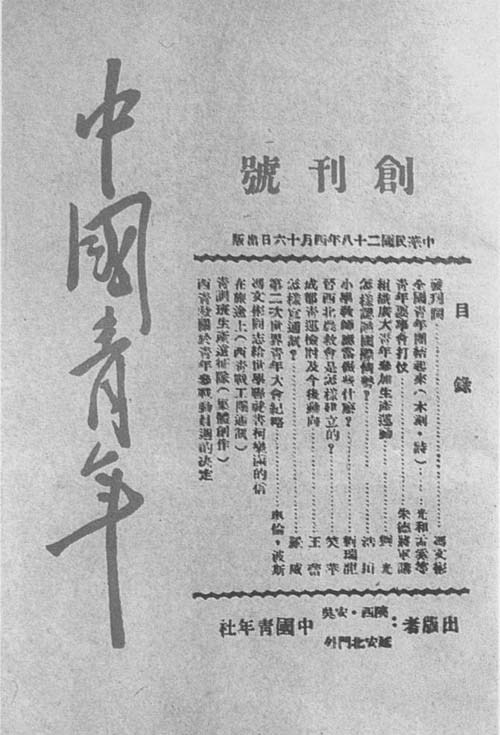 中國青年
創刊號
中華民國二十八年四月十六日出版
目錄
發刊詞……馮文彬
全國青年團結起來（木刻·詩）……光和孟奚等
青年要學會打仗……朱德將軍講
組織廣大青年參加生產運動……劉光
怎樣認識國際情勢？……
小學教師應當做些什麼？……劉瑞龍
晉西北農救會是怎樣建立的？……笑萍
成都青運檢討及今後動向……王
怎樣宣通試？……威
第二次世界青年大會紀略……倫·波斯
馮文彬同志給世學聯秘書柯樂滿的信
在旅途上（西青戰工團通訊）
青訓班生產遠征隊（集體創作）
西青救關於青年參戰動員週的決定
出版者：
陝西·安吳
延安北門外
中國青年社